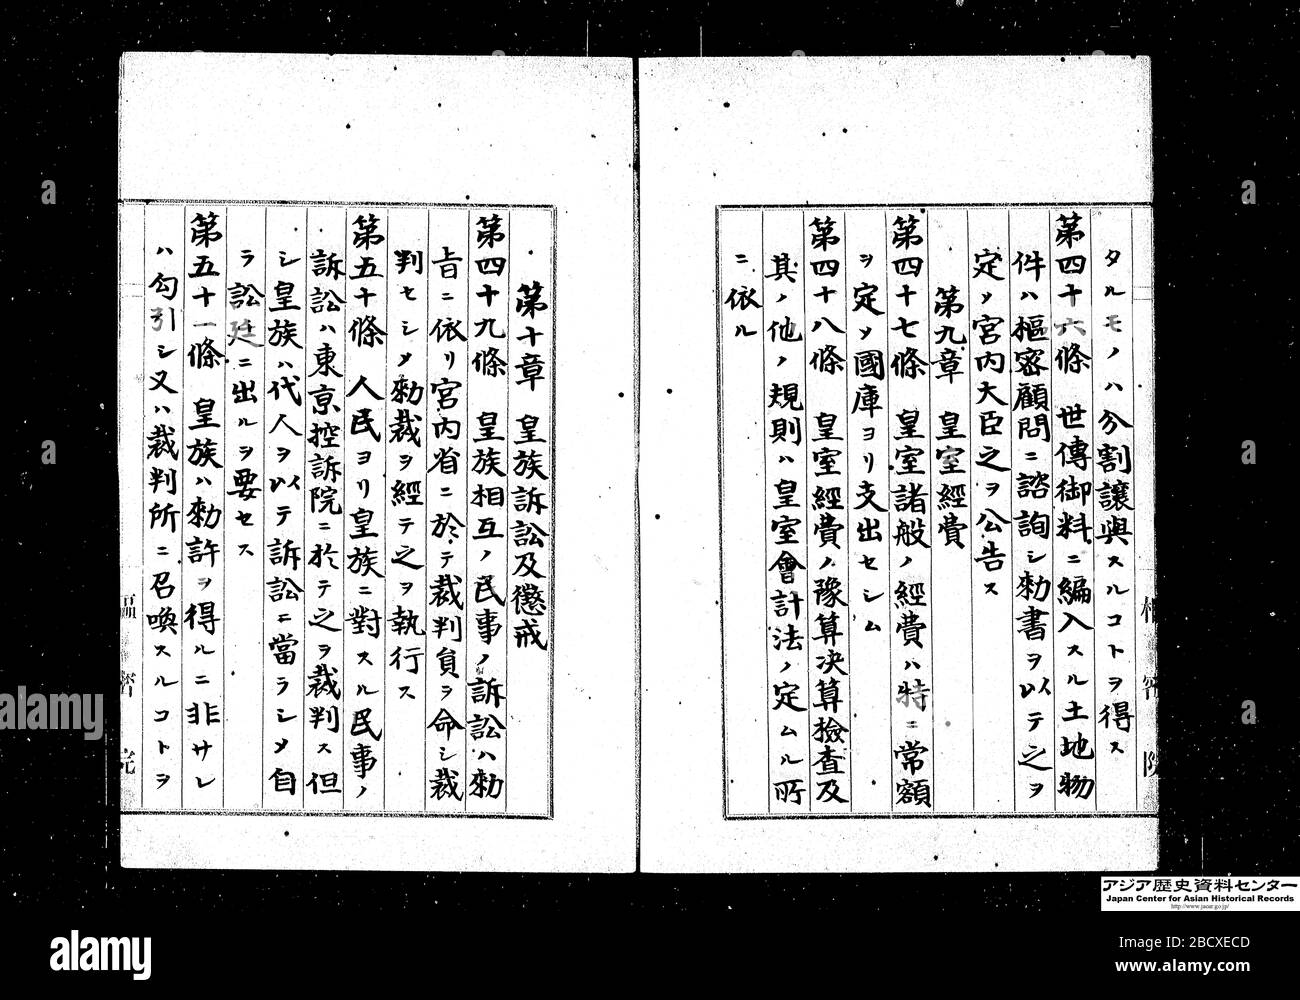 タルモノハ分割讓與スルコトヲ得ス
第四十六條 世傳御料ニ編入スル土地物
件ハ樞密顧問ニ諮詢シ勅書ヲ以テ之ヲ
定メ宮内大臣之ヲ公告ス
第九章 皇室經費
第四十七條 皇室諸般ノ經費ハ特ニ常額
ヲ定メ國庫ヨリ支出セシム
第四十八條 皇室經費ノ豫算決算檢査及
其ノ他ノ規則ハ皇室會計法ノ定ムル所
ニ依ル
第十章 皇族訴訟及懲戒
第四十九條 皇族相互ノ民事ノ訴訟ハ勅
旨ニ依リ宮内省ニ於テ裁判員ヲ命シ裁
判セシメ勅裁ヲ經テ之ヲ執行ス
第五十條 人民ヨリ皇族ニ對スル民事ノ
訴訟ハ東京控訴院ニ於テ之ヲ裁判ス但
シ皇族ハ代人ヲ以テ訴訟ニ當ラシメ自
ラ訟廷ニ出ルヲ要セス
第五十一條 皇族ハ勅許ヲ得ルニ非サレ
ハ勾引シ又ハ裁判所ニ召喚スルコトヲ
アジア歴史資料センター
Japan Center for Asian Historical Records
http://www.jacar.go.jp/
alamy
Image ID: 2BCXECD
www.alamy.com